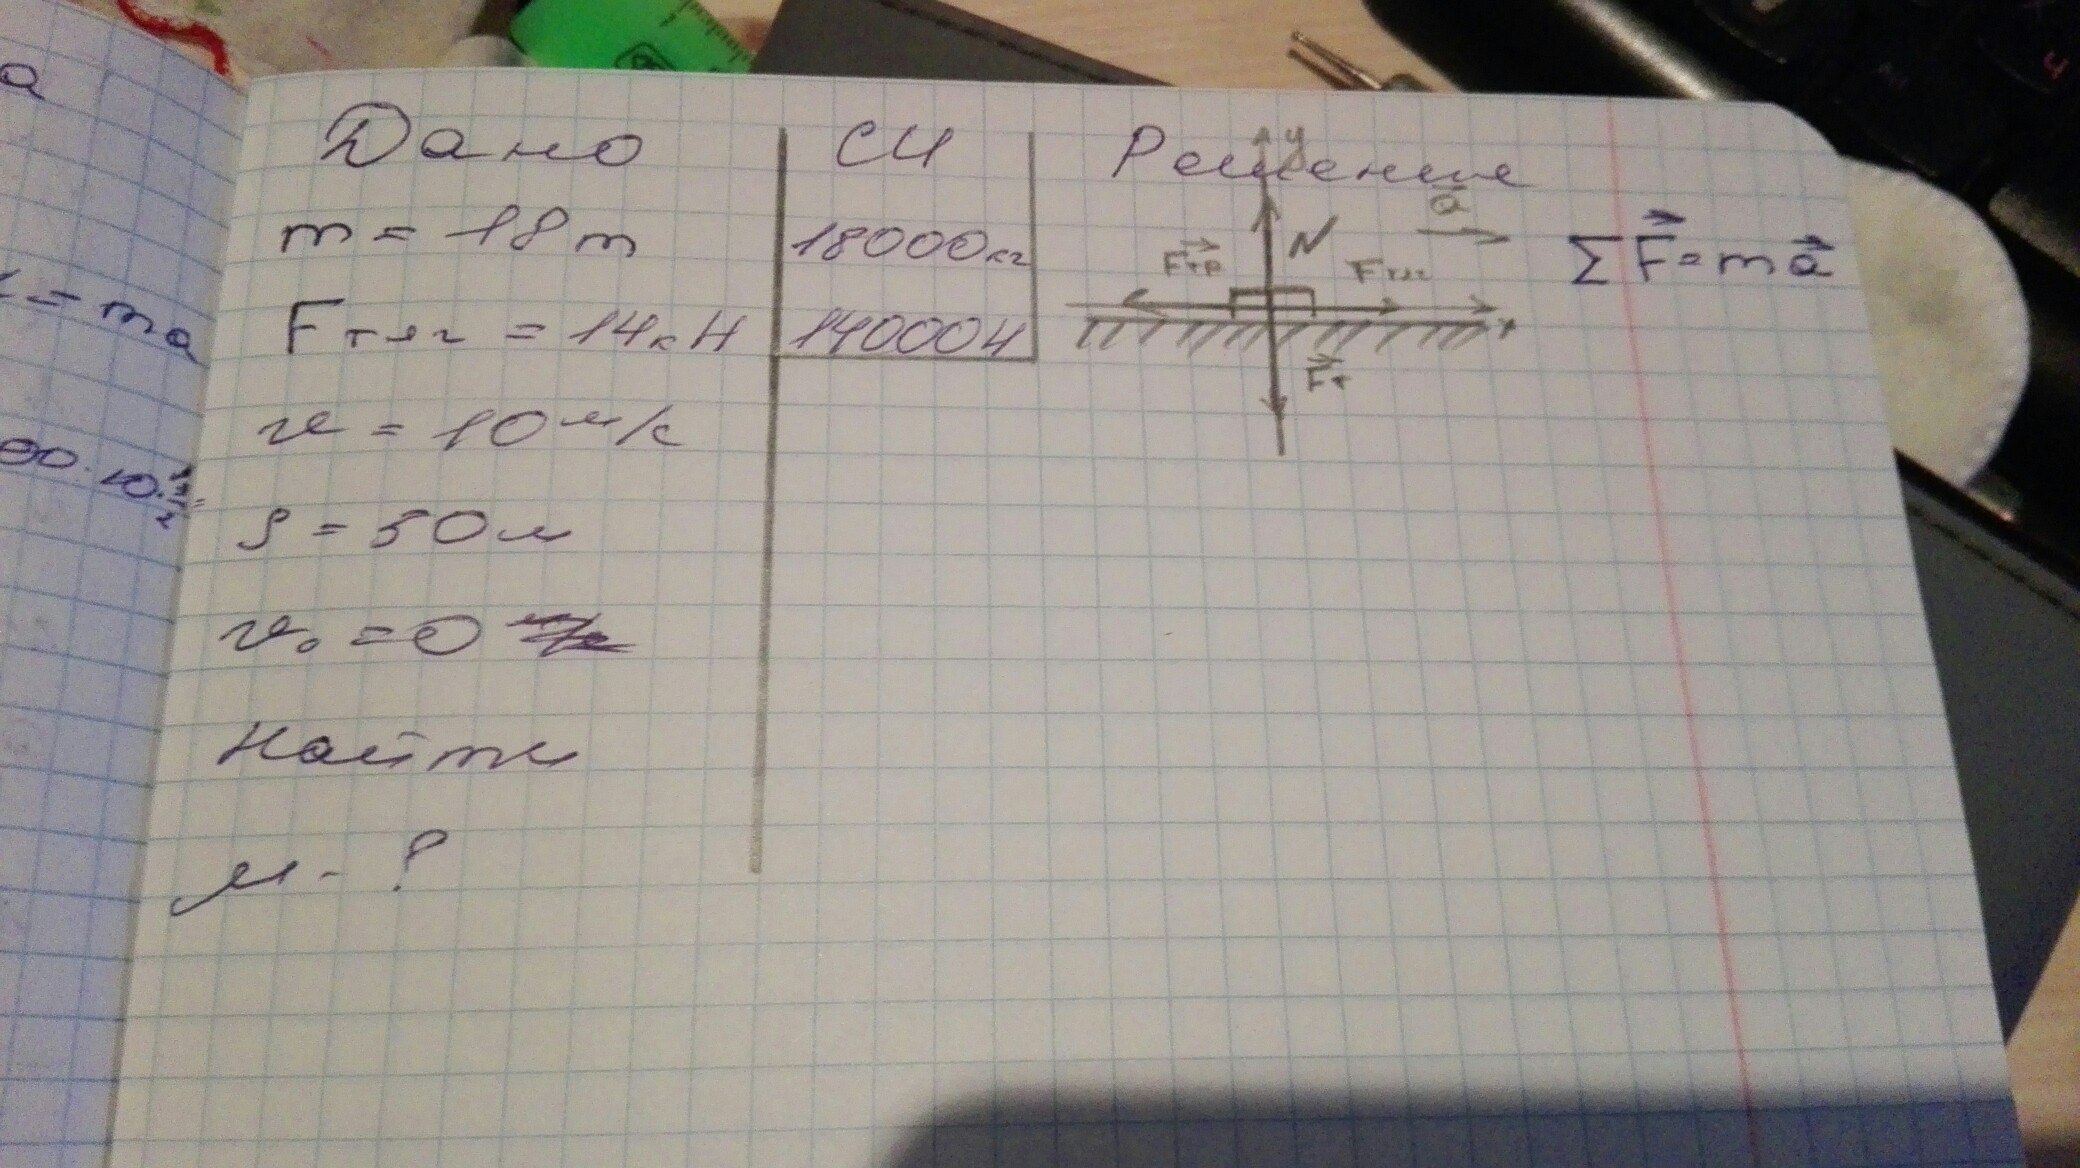 Дано
m = 18 т
Fтяг = 14 кН
v = 10 м/с
S = 50 м
v₀ = 0
Найти
μ - ?
СИ
18000 кг
14000 Н
Решение
y
a
N
Fтр
Fтяг
Fт
x
ΣF = ma
a
= ma